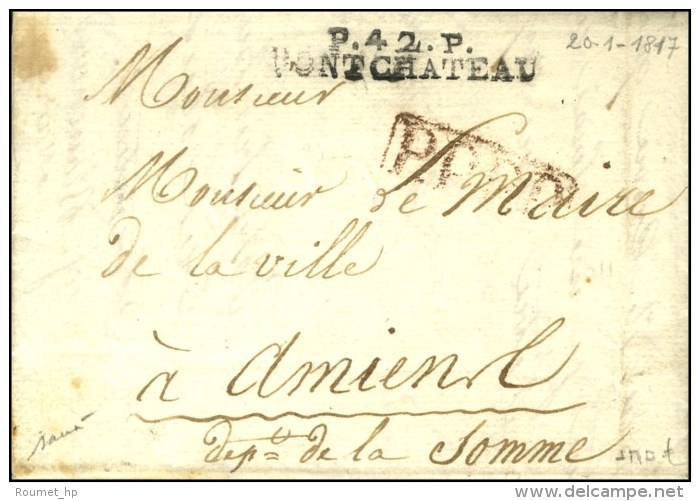 P.42.P.
PONTCHATEAU
20-1-1817
Monsieur
P.P.P.P
Monsieur Le Maire
de la ville
à Amiens
dep.t de la Somme
Roumet_hp
delcampe.net